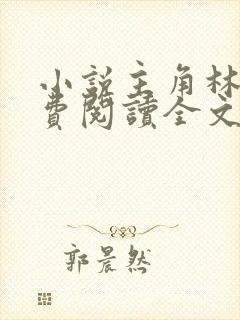 小説主角林
費閱讀全文
郭晨然